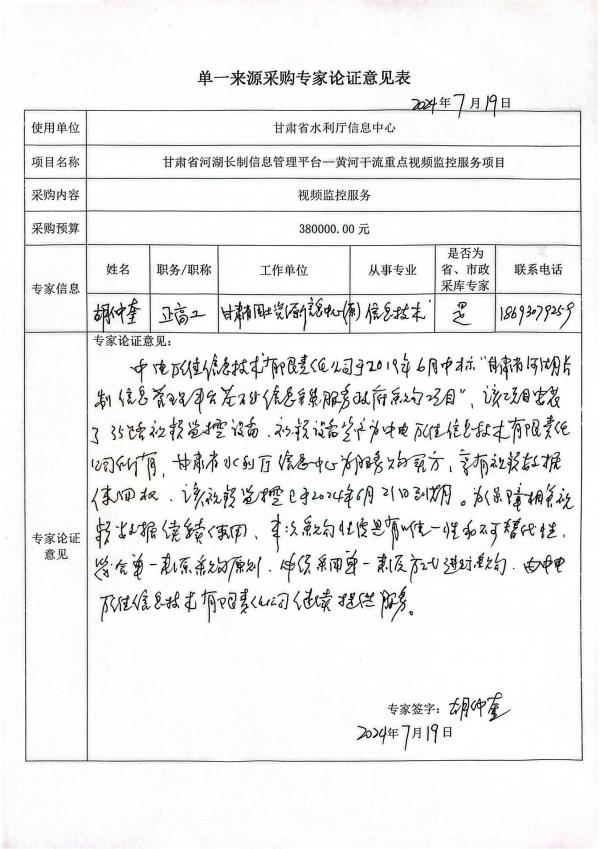 单一来源采购专家论证意见表
2024年7月19日
使用单位 甘肃省水利厅信息中心
项目名称 甘肃省河湖长制信息管理平台—黄河干流重点视频监控服务项目
采购内容 视频监控服务
采购预算 380000.00 元
专家信息 姓名 职务/职称 工作单位 从事专业 是否为省、市政采库专家 联系电话
胡仲奎 正高工 甘肃省国土资源信息中心(原) 信息技术 是
专家论证意见
专家论证意见:
中电万维信息技术有限责任公司于2019年6月中标“甘肃省河湖长
制信息管理平台信息系统服务政府采购项目”,该项目安装
了35路视频监控设备、视频设备资产为中电万维信息技术有限责任
公司所有,甘肃省水利厅信息中心为服务购买方,享有视频数据
使用权、该视频监控已于2024年6月21日到期。为保障相关视
频数据续续使用、本次采购性质具有唯一性和不可替代性,
符合单一来源采购原则,建议采用单一来源方式进行采购,由中电
万维信息技术有限责任公司继续提供服务。
专家签字:胡仲奎
2024年7月19日